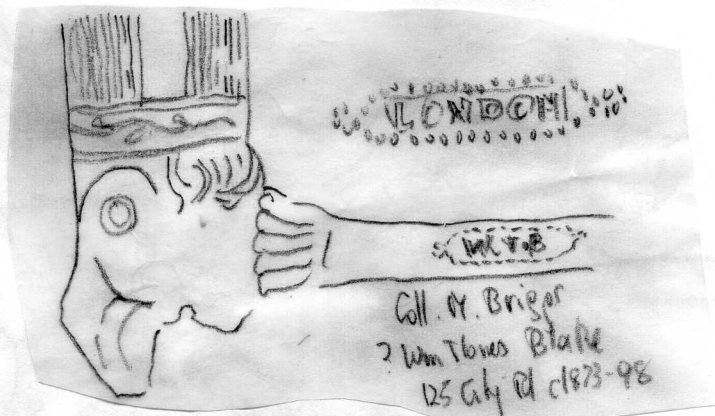 LONDON
W.T.B
Coll. M. Briggs
? Wm Blake
125 City Rd c1873-98